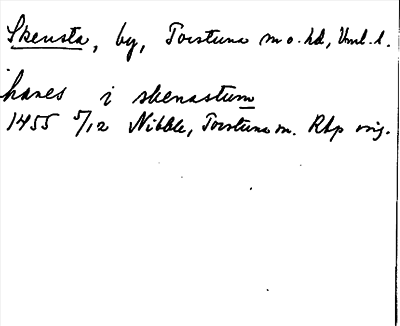 Skensta, by, Torstuna sn o. hd, Vml. l.
hanes i skenastum
1455 5/12 Nibble, Torstuna sn. RAp orig.